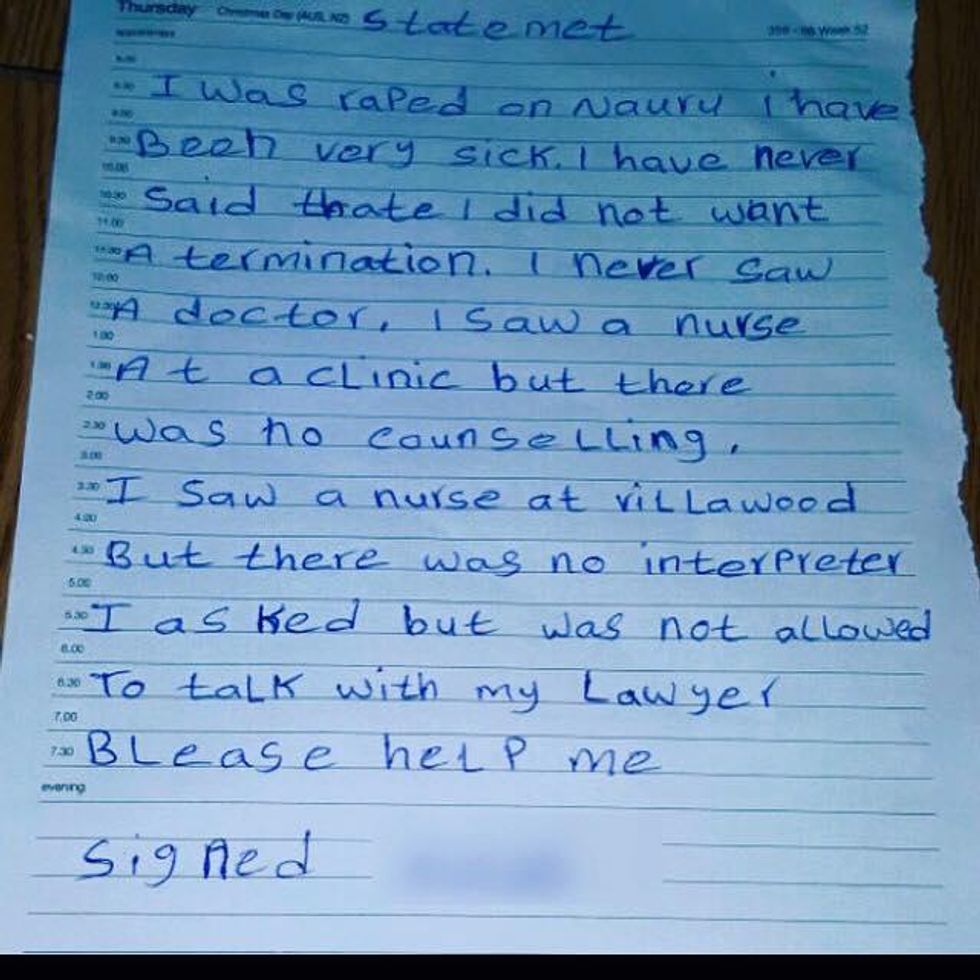 Thursday Christmas Day (AUS, NZ) Statemet 359 - 06 Week 52
8.30 I was raped on Nauru i have
9.00
9.30 Been very sick. I have never
10.00
10.30 Said thate I did not want
11.00
11.30 A termination. I never saw
12.00
12.30 A doctor, I saw a nurse
1.00
1.30 At a cLinic but there
2.00
2.30 was no counseLLing,
3.00
3.30 I saw a nurse at viLLawood
4.00
4.30 But there was no interpreter
5.00
5.30 I asked but was not allowed
6.00
6.30 To taLK with my Lawyer
7.00
7.30 BLease heLP me
evening
signed